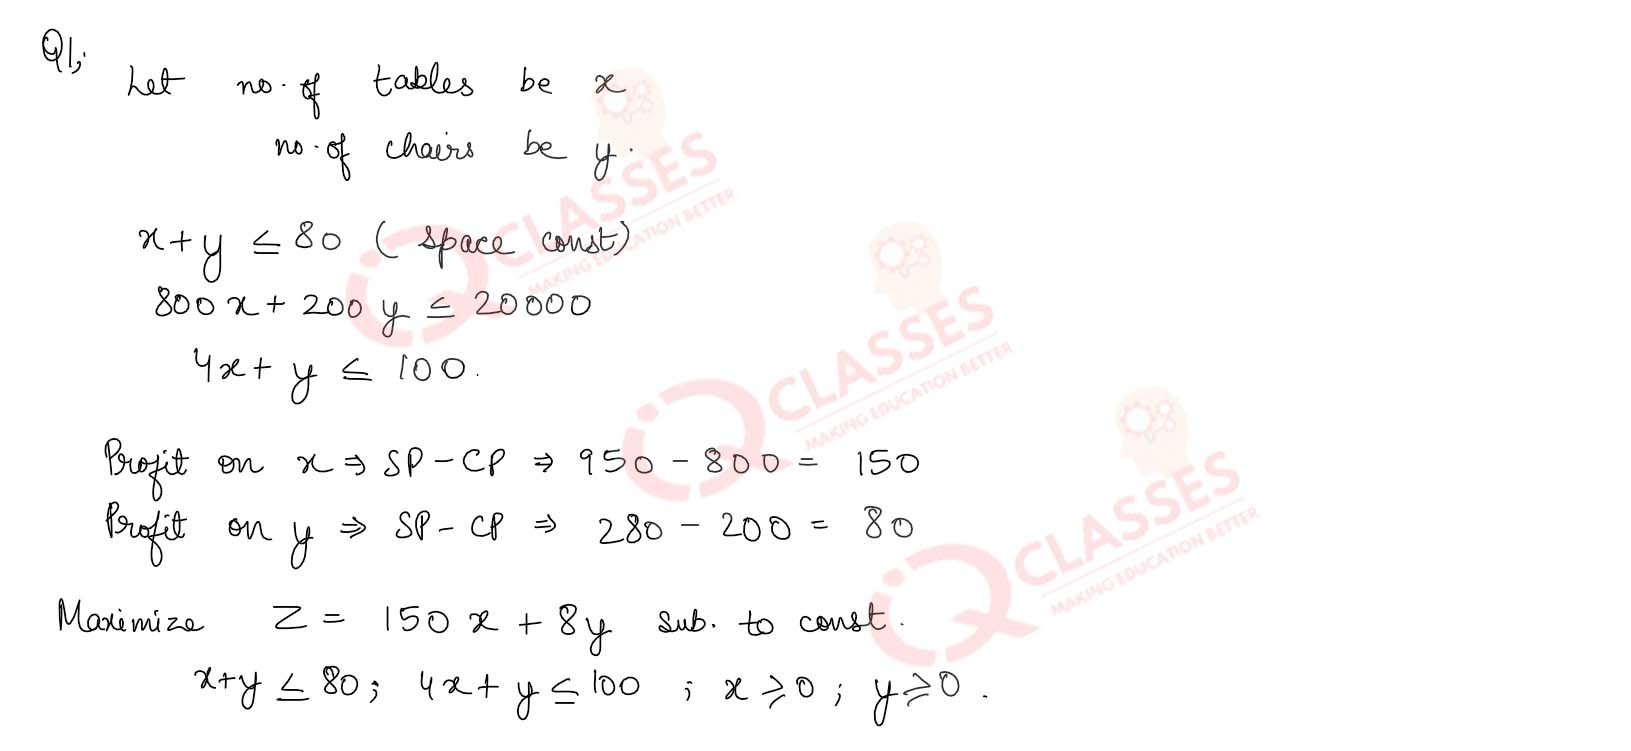 Q1;
Let no. of tables be x
no. of chairs be y.
x+y ≤ 80 ( space const)
800x + 200y ≤ 20000
4x + y ≤ 100.
Profit on x ⇒ SP - CP ⇒ 950 - 800 = 150
Profit on y ⇒ SP - CP ⇒ 280 - 200 = 80
Maximize Z = 150x + 8y sub. to const.
x+y ≤ 80; 4x + y ≤ 100 ; x ≥ 0 ; y ≥ 0 .
iQ CLASSES
MAKING EDUCATION BETTER
iQ CLASSES
MAKING EDUCATION BETTER
iQ CLASSES
MAKING EDUCATION BETTER